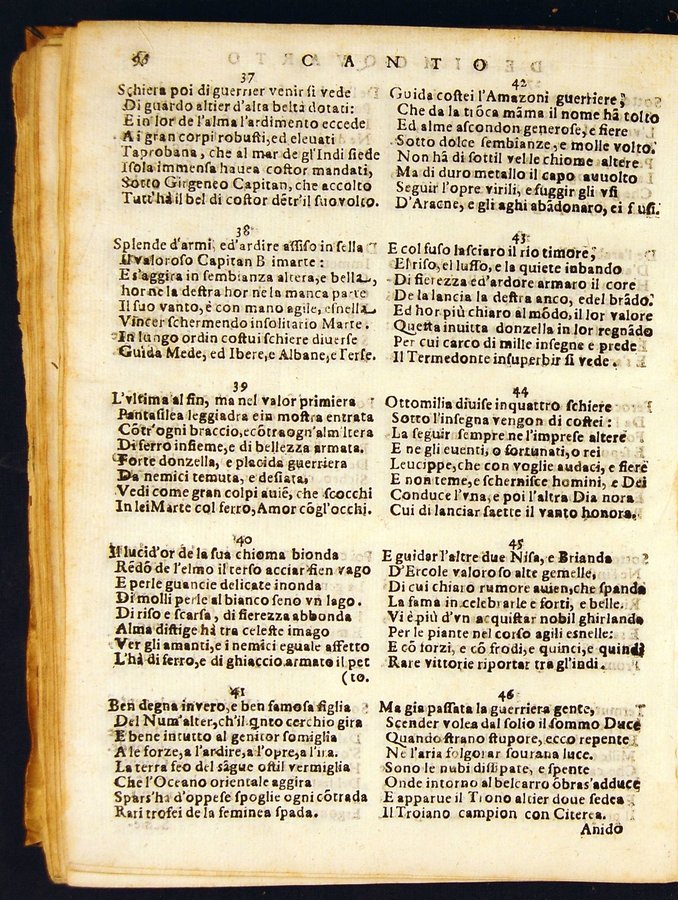 96
CANTO
37
Schiera poi di guerrier venir si vede
Di guardo altier d'alta beltà dotati:
E in lor de l'alma l'ardimento eccede
Ai gran corpi robusti, ed eleuati
Taprobana, che al mar de gl'Indi siede
Isola immensa hauea costor mandati,
Sotto Girgeneo Capitan, che accolto
Tutt'hà il bel di costor dẽtr'il suo volto.
38
Splende d'armi, ed'ardire assiso in sella
Il valoroso Capitan Bimarte:
E s'aggira in sembianza altera, e bella,
hor ne la destra hor ne la manca parte
Il suo vanto, è con mano agile, esnella
Vincer schermendo insolitario Marte.
In lungo ordin costui schiere diuerse
Guida Mede, ed Ibere, e Albane, e Perse.
39
L'vltima al fin, ma nel valor primiera
Pantasilea leggiadra ein mostra entrata
Cõtr'ogni braccio, ecõtra ogn'alm'altera
Di ferro insieme, e di bellezza armata.
Forte donzella, e placida guerriera
Da nemici temuta, e desiata,
Vedi come gran colpi auiẽ, che scocchi
In lei Marte col ferro, Amor cõgl'occhi.
40
Il lucid'or de la sua chioma bionda
Rẽdõ de l'elmo il terso acciar sien vago
E perle guancie delicate inonda
Di molli perle al bianco seno vn lago.
Di riso e scarsa, di fierezza abbonda
Alma distige hà tra celeste imago
Ver gli amanti, e i nemici eguale affetto
L'hà di ferro, e di ghiaccio armato il pet
(to.
41
Ben degna invero, e ben famosa figlia
Del Num'alter, ch'il qnto cerchio gira
E bene intutto al genitor somiglia
A le forze, a l'ardire, a l'opre, a l'ira.
La terra feo del sãgue ostil vermiglia
Che l'Oceano orientale aggira
Spars'ha d'oppese spoglie ogni cõtrada
Rari trofei de la feminea spada.
42
Guida costei l'Amazoni guerriere,
Che da la tiõca mãma il nome hã tolto
Ed alme ascondon generose, e fiere
Sotto dolce sembianze, e molle volto.
Non hã di sottil velle chiome altere
Ma di duro metallo il capo auuolto
Seguir l'opre virili, e fuggir gli vsi
D'Aracne, e gli aghi abãdonaro, ei fusi.
43
E col fuso lasciaro il rio timore,
El riso, el lusso, e la quiete inbando
Di fierezza ed'ardore armaro il core
De la lancia la destra anco, edel brãdo.
Ed hor più chiaro al mõdo, il lor valore
Questa inuitta donzella in lor regnãdo
Per cui carco di mille insegne e prede
Il Termedonte insuperbir si vede.
44
Ottomilia diuise inquattro schiere
Sotto l'insegna vengon di costei:
La seguir sempre ne l'imprese altere
E ne gli euenti, o fortunati, o rei
Leucippe, che con voglie audaci, e fiere
E non teme, e schernisce homini, e Dei
Conduce l'vna, e poi l'altra Dianora
Cui di lanciar saette il vanto honora.
45
E guidar l'altre due Nisa, e Brianda
D'Ercole valoroso alte gemelle,
Di cui chiaro rumore auien, che spanda
La fama in celebrarle e forti, e belle.
Vi è più d'vn acquistar nobil ghirlanda
Per le piante nel corso agili esnelle:
E cõ forzi, e cõ frodi, e quinci, e quindi
Rare vittorie riportar tra gl'indi.
46
Ma gia passata la guerriera gente,
Scender volea dal solio il sommo Duce
Quando strano stupore, ecco repente
Ne l'aria folgorar sourana luce.
Sono le nubi dissipate, e spente
Onde intorno al bel carro õbras'adduce
E apparue il Trono altier doue sedea
Il Troiano campion con Citerea.
Anido